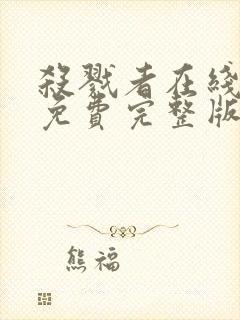 殺戮者在綫
免費完整版
熊福